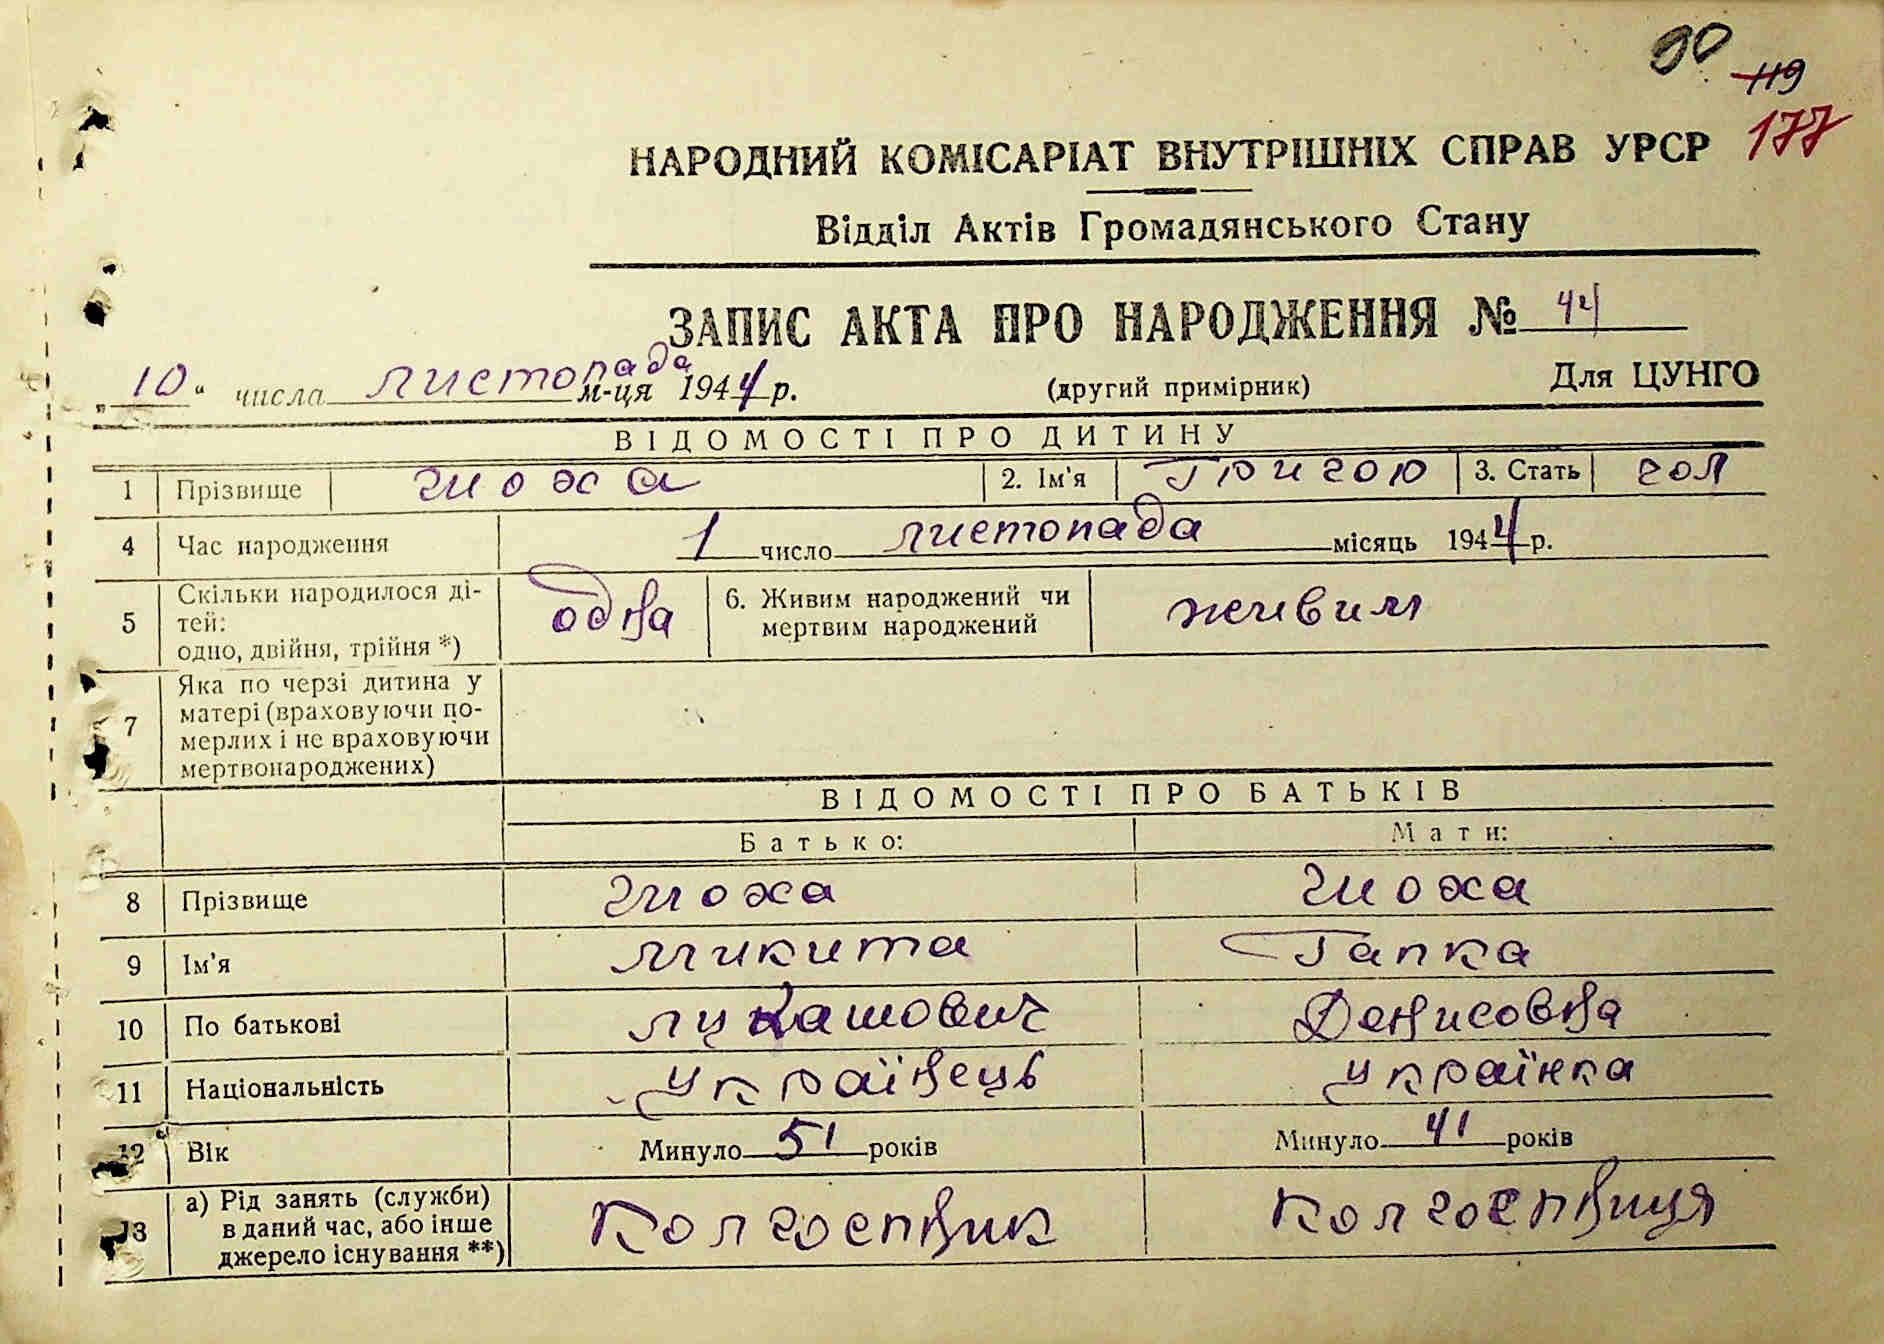 90
119
177
НАРОДНИЙ КОМІСАРІАТ ВНУТРІШНІХ СПРАВ УРСР
Відділ Актів Громадянського Стану
ЗАПИС АКТА ПРО НАРОДЖЕННЯ № 44
„10“ числа листопада м-ця 1944 р. (другий примірник) Для ЦУНГО
ВІДОМОСТІ ПРО ДИТИНУ
1 Прізвище 2. Ім'я Григою 3. Стать чол
4 Час народження 1 число листопада місяць 1944 р.
5 Скільки народилося ді-
тей:
одно, двійня, трійня *) одна 6. Живим народжений чи
мертвим народжений живим
7 Яка по черзі дитина у
матері (враховуючи по-
мерлих і не враховуючи
мертвонароджених)
ВІДОМОСТІ ПРО БАТЬКІВ
Батько: Мати:
8 Прізвище
9 Ім'я Микита Гапка
10 По батькові Лукашович Денисовна
11 Національність Українець українка
12 Вік Минуло 51 років Минуло 41 років
13 а) Рід занять (служби)
в даний час, або інше
джерело існування **) Колгоспник Колгоспниця